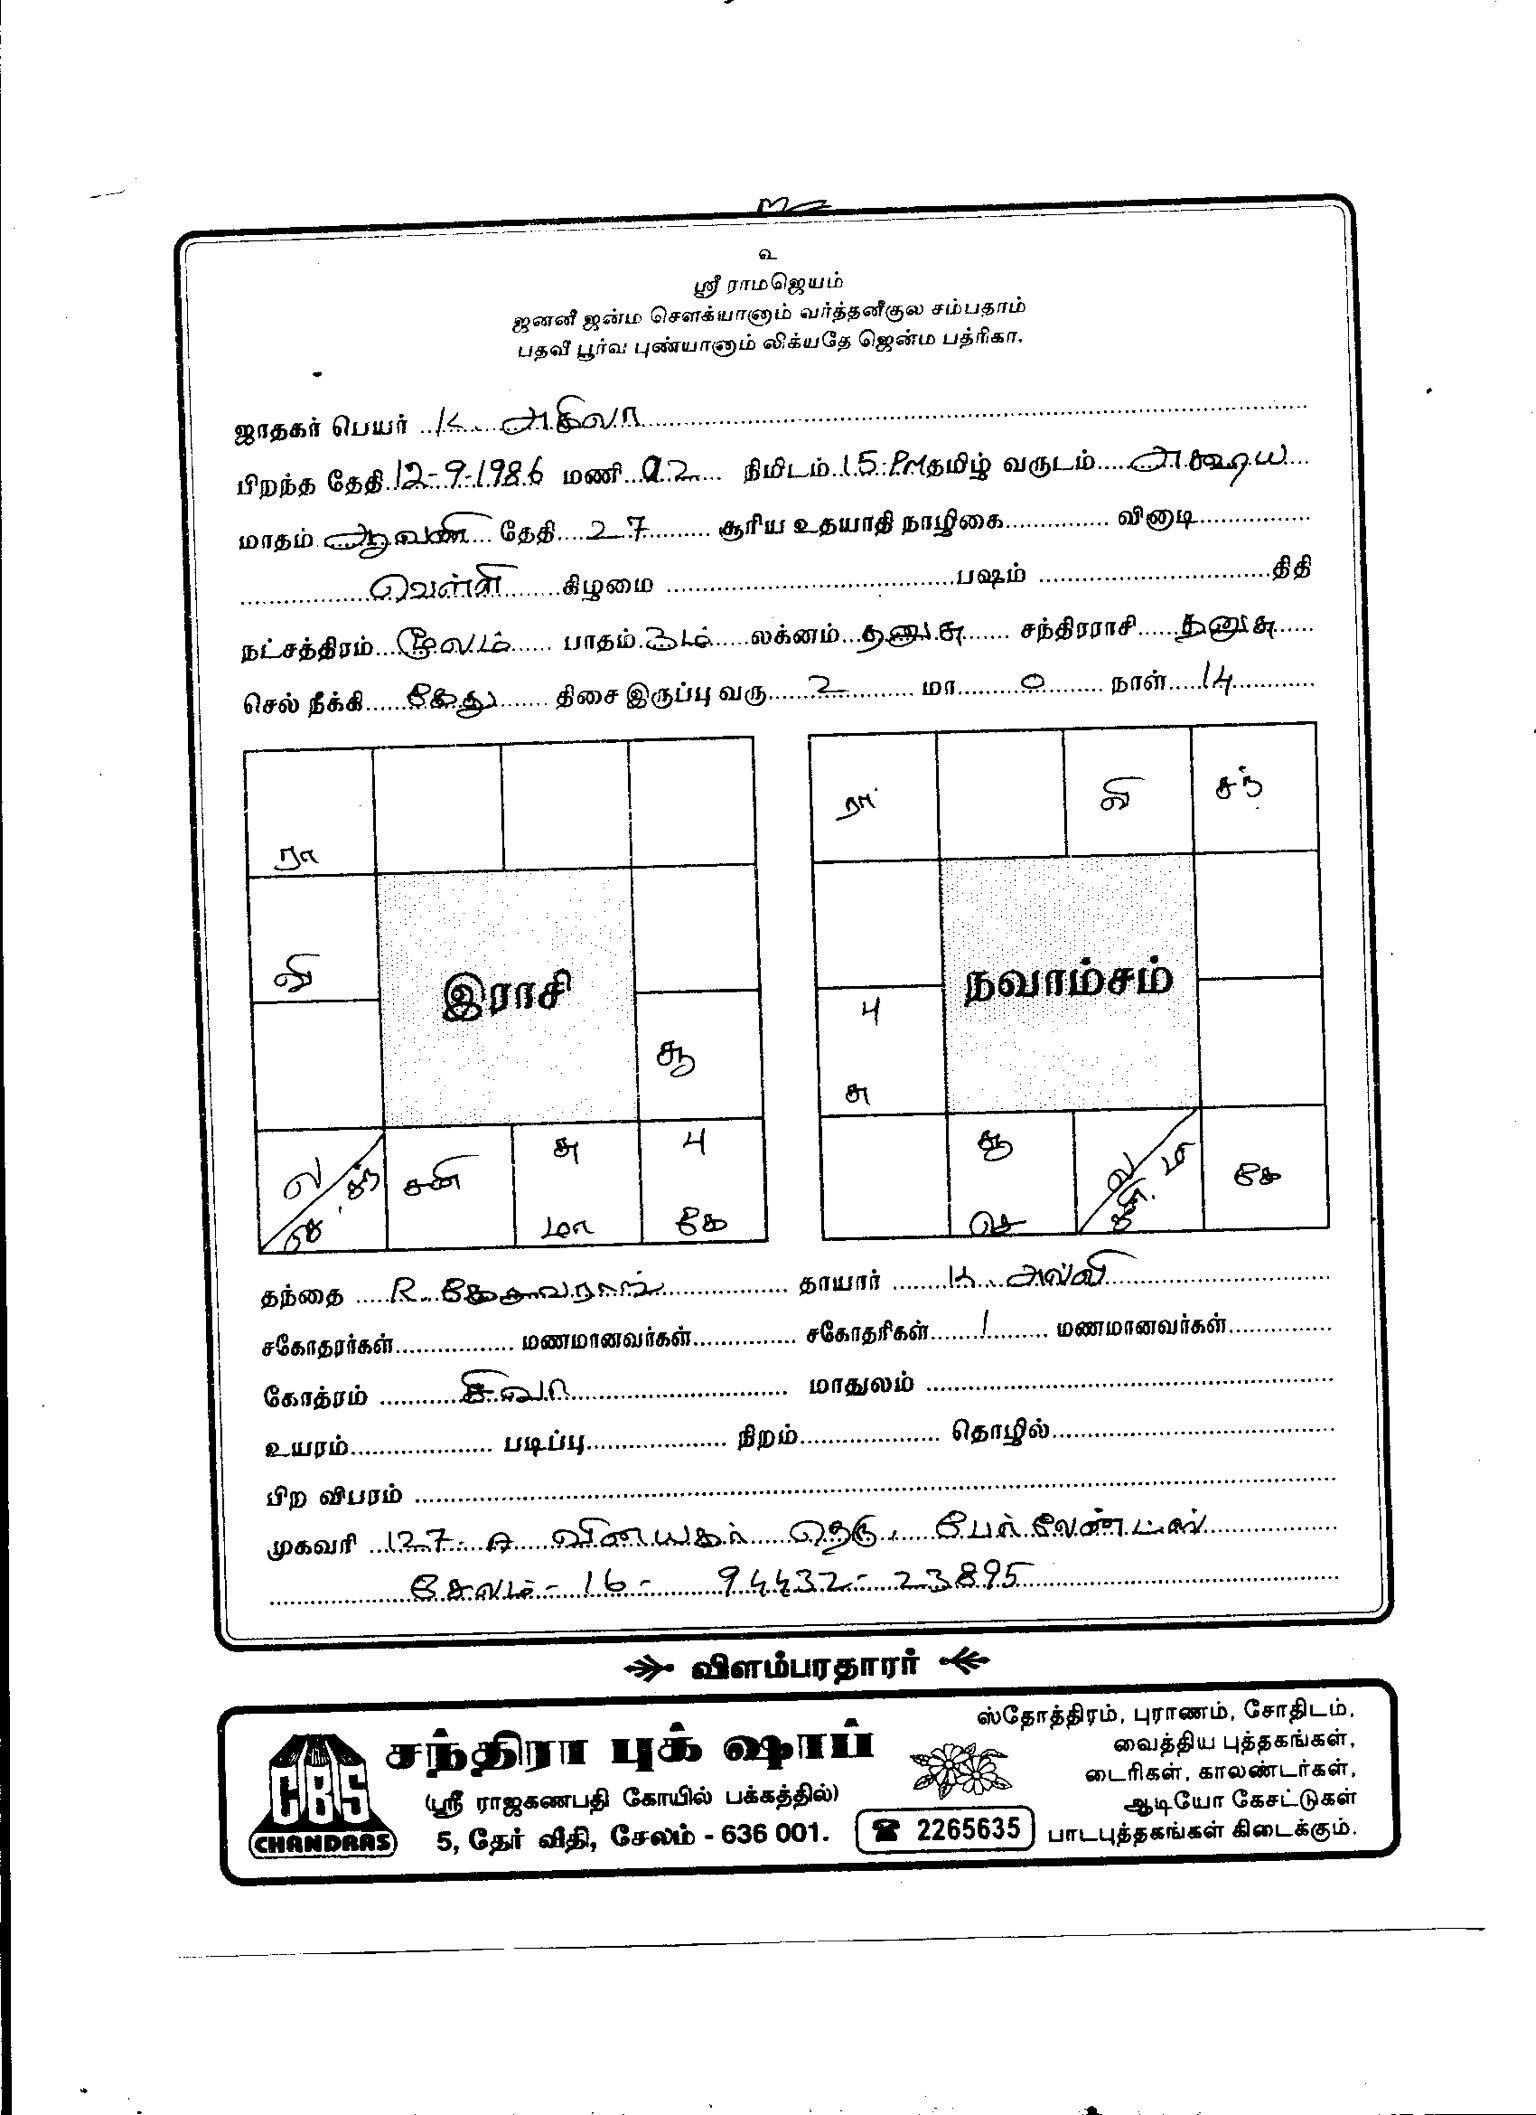 உ
ஸ்ரீ ராமஜெயம்
ஜனனீ ஜன்ம சௌக்யானாம் வர்த்தனீகுல சம்பதாம்
பதவீ பூர்வ புண்யானாம் லிக்யதே ஜென்ம பத்ரிகா.
ஜாதகர் பெயர் K. அகிலா
பிறந்த தேதி 12-9-1986 மணி 02 நிமிடம் 15 PM தமிழ் வருடம் அக்ஷய
மாதம் ஆவணி தேதி 27 சூரிய உதயாதி நாழிகை வினாடி
வெள்ளி கிழமை பஷம் திதி
நட்சத்திரம் மூலம் பாதம் 3ம் லக்னம் தனுசு சந்திரராசி தனுசு
செல் நீக்கி கேது திசை இருப்பு வரு 2 மா 0 நாள் 14
ரா
வி
இராசி
சூ
ல சந் செ சனி சு மா பு கே
ரா வி சந்
நவாம்சம்
பு
சு
சூ செ ல சனி மா கே
தந்தை R. தாயார் K.
சகோதரர்கள் மணமானவர்கள் சகோதரிகள் 1 மணமானவர்கள்
கோத்ரம் சிவா மாதுலம்
உயரம் படிப்பு நிறம் தொழில்
பிற விபரம்
முகவரி 127-A வினாயகர் தெரு,
சேலம் - 16 - 94432-23895
விளம்பரதாரர்
CBS
CHANDRAS
சந்திரா புக் ஷாப்
(ஸ்ரீ ராஜகணபதி கோயில் பக்கத்தில்)
5, தேர் வீதி, சேலம் - 636 001. ☎ 2265635
ஸ்தோத்திரம், புராணம், சோதிடம்,
வைத்திய புத்தகங்கள்,
டைரிகள், காலண்டர்கள்,
ஆடியோ கேசட்டுகள்
பாடபுத்தகங்கள் கிடைக்கும்.